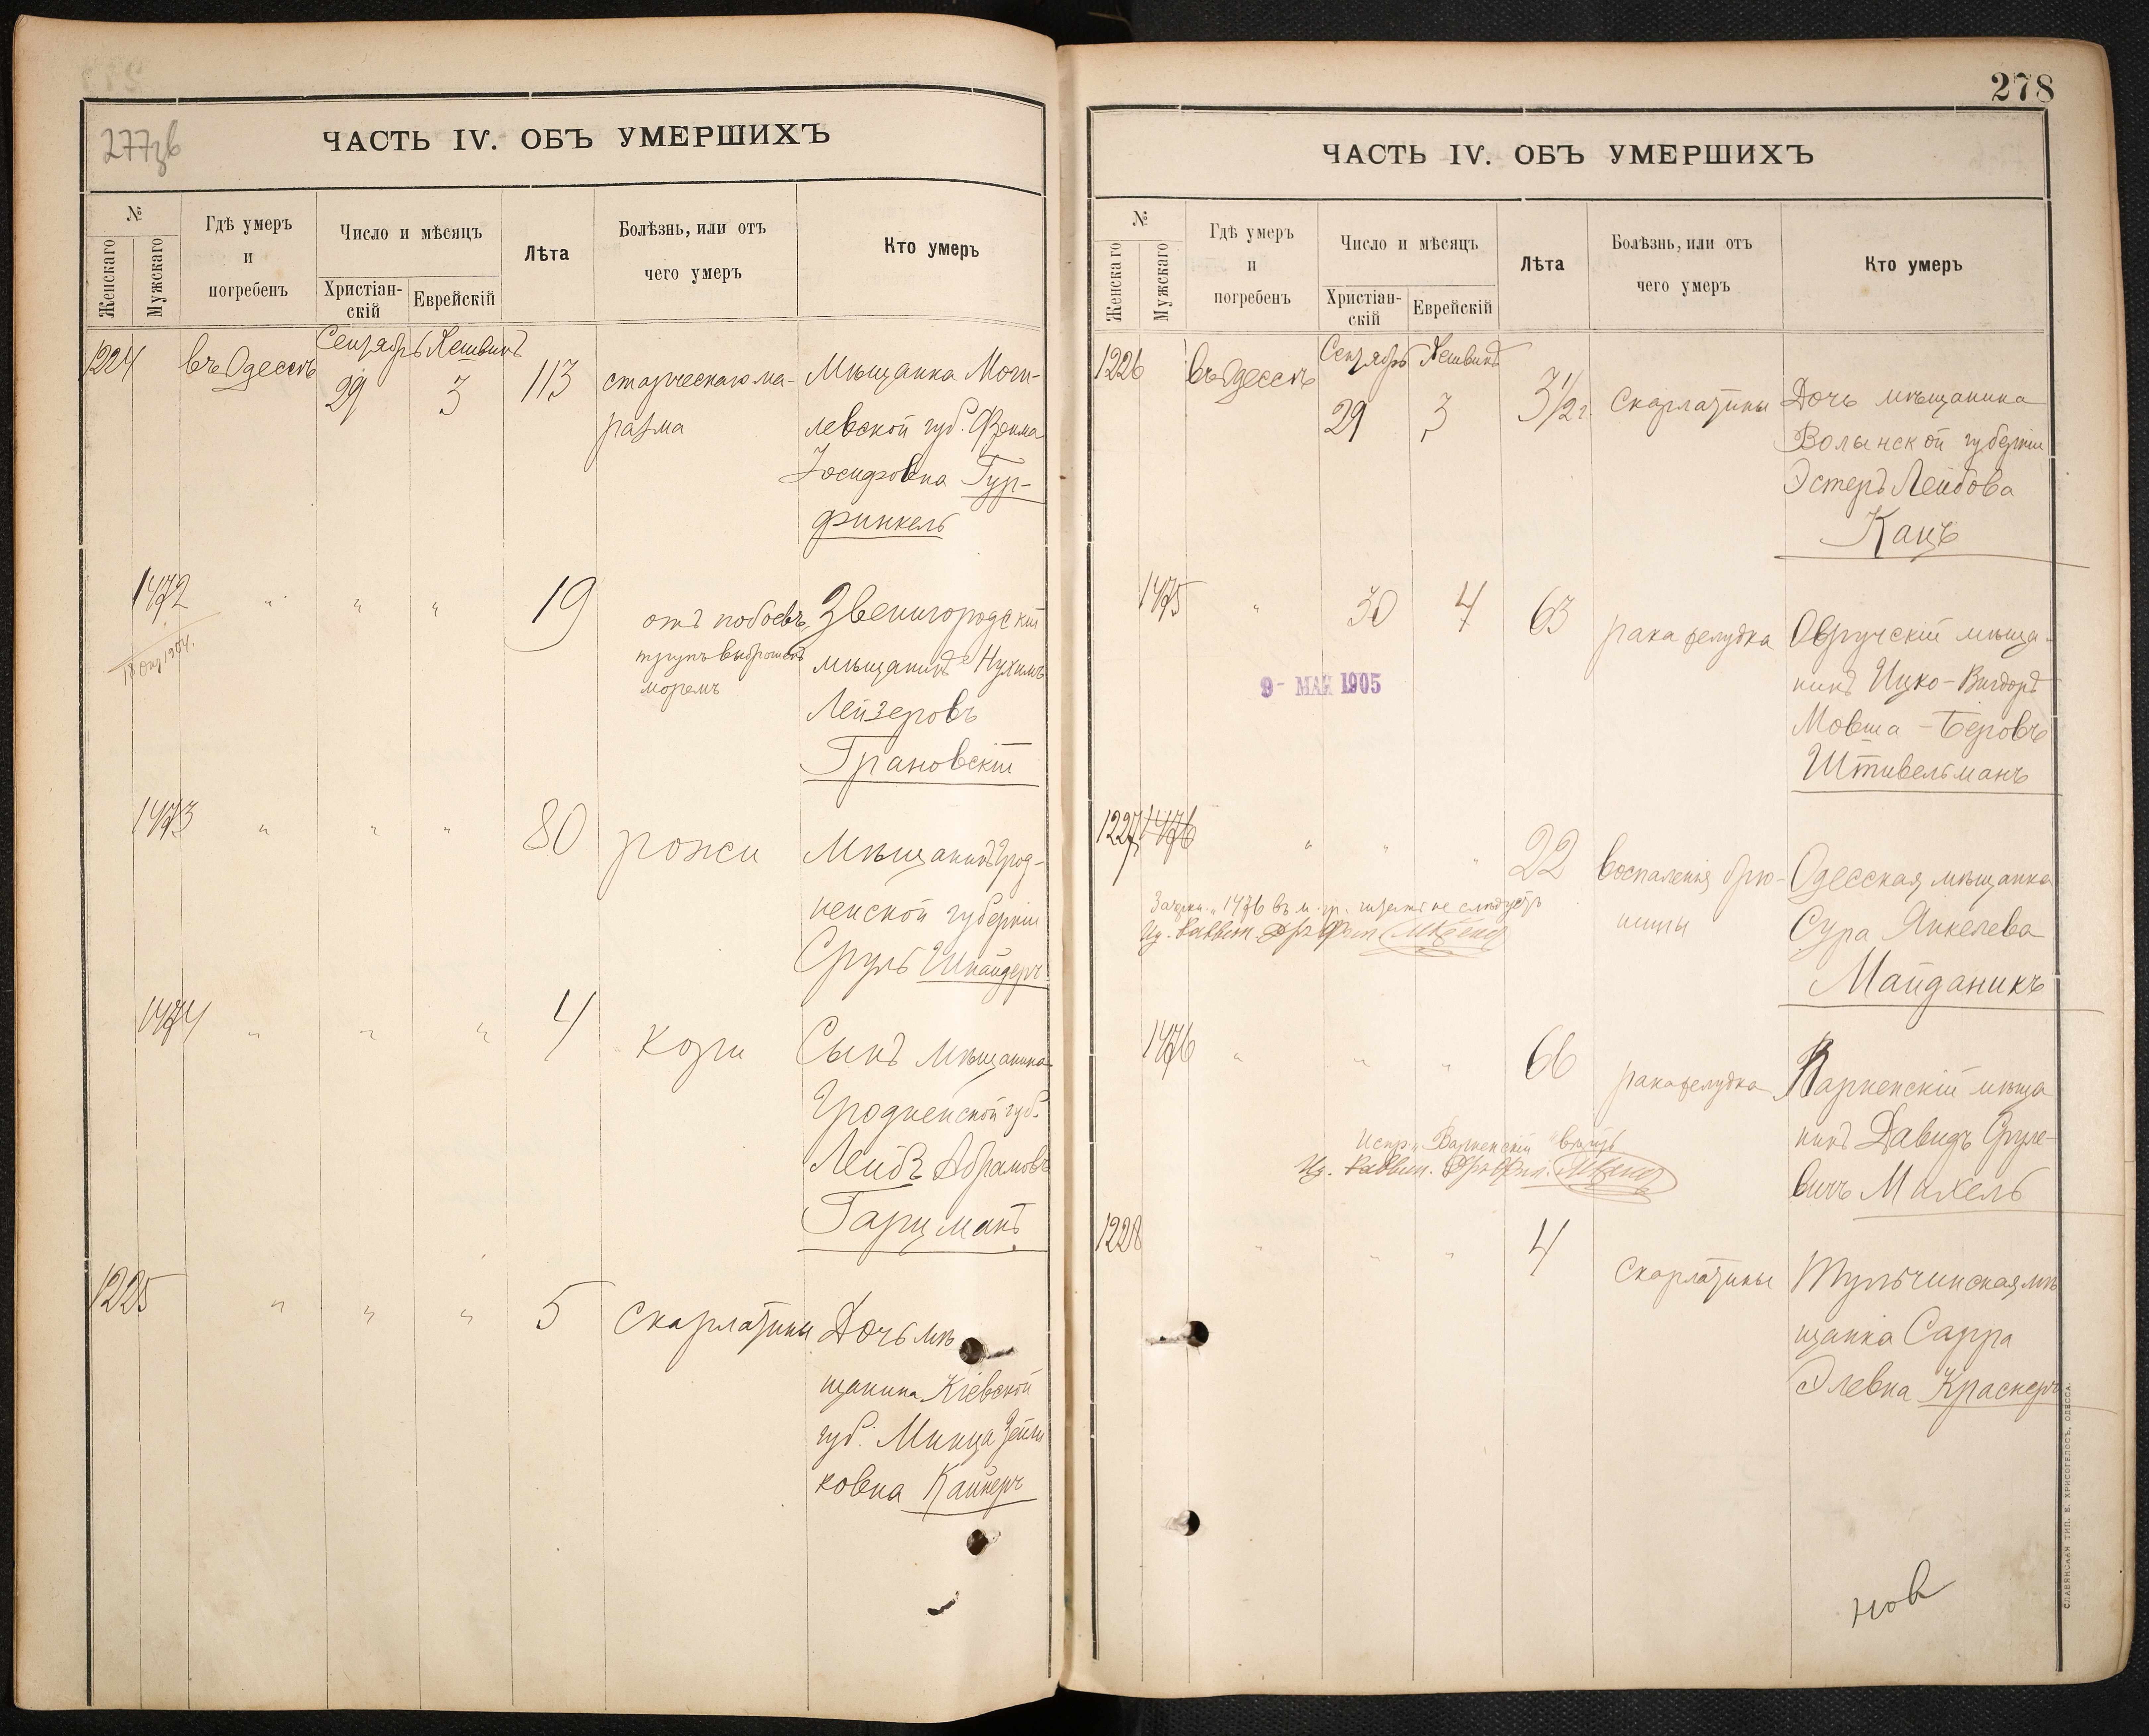 277зв
ЧАСТЬ IV. ОБЪ УМЕРШИХЪ
№
Женскаго
Мужскаго
Гдѣ умеръ
и
погребенъ
Число и мѣсяцъ
Христіан-
скій
Еврейскій
Лѣта
Болѣзнь, или отъ
чего умеръ
Кто умеръ
1224
въ Одессѣ
Сентябрь
29
Хешвинъ
3
113
старческаго ма-
разма
Мѣщанка Моги-
левской губ. Фрима
Іосифовна Гур-
финкель
1472
18 1904.
" " "
19
отъ побоевъ,
трупъ выброшенъ
моремъ
Звенигородскій
мѣщанинъ Нухимъ
Лейзеровъ
Грановскій
1473
" " "
80
рожи
Мѣщанинъ Грод-
ненской губерніи
Сруль Шнайдеръ
1474
" " "
4
кори
Сынъ мѣщанина
Гродненской губ.
Лейбъ Абрамовъ
Гарцманъ
1225
" " "
5
скарлатины
Дочь мѣ
щанина Кіевской
губ. Минца Зейли
ковна Кайнеръ
278
ЧАСТЬ IV. ОБЪ УМЕРШИХЪ
№
Женскаго
Мужскаго
Гдѣ умеръ
и
погребенъ
Число и мѣсяцъ
Христіан-
скій
Еврейскій
Лѣта
Болѣзнь, или отъ
чего умеръ
Кто умеръ
1226
въ Одессѣ
Сентябрь
29
Хешвинъ
3
3 1/2 г.
скарлатины
Дочь мѣщанина
Волынской губерніи
Эстеръ Лейбова
Кацъ
1475
"
30
4
63
рака желудка
Овручскій мѣща-
нинъ Ицко-Вигдоръ
Мовша-Беровъ
Штивельманъ
9- МАЯ 1905
1227
1476
" " "
22
воспаленія брю-
шины
Одесская мѣщанка
Сура Янкелева
Майданикъ
Зачеркн. "1476" въ м. гр. читать не слѣдуетъ
1476
" " "
66
рака желудка
Варненскій мѣща
нинъ Давидъ Сруле-
вичъ Михель
Испр. "Варненскій" вѣрить
1228
" " "
4
скарлатины
Тульчинская мѣ
щанка Сарра
Элевна Краснеръ
нов
СЛАВЯНСКАЯ ТИП. Е. ХРИСОГЕЛОСЪ, ОДЕССА.